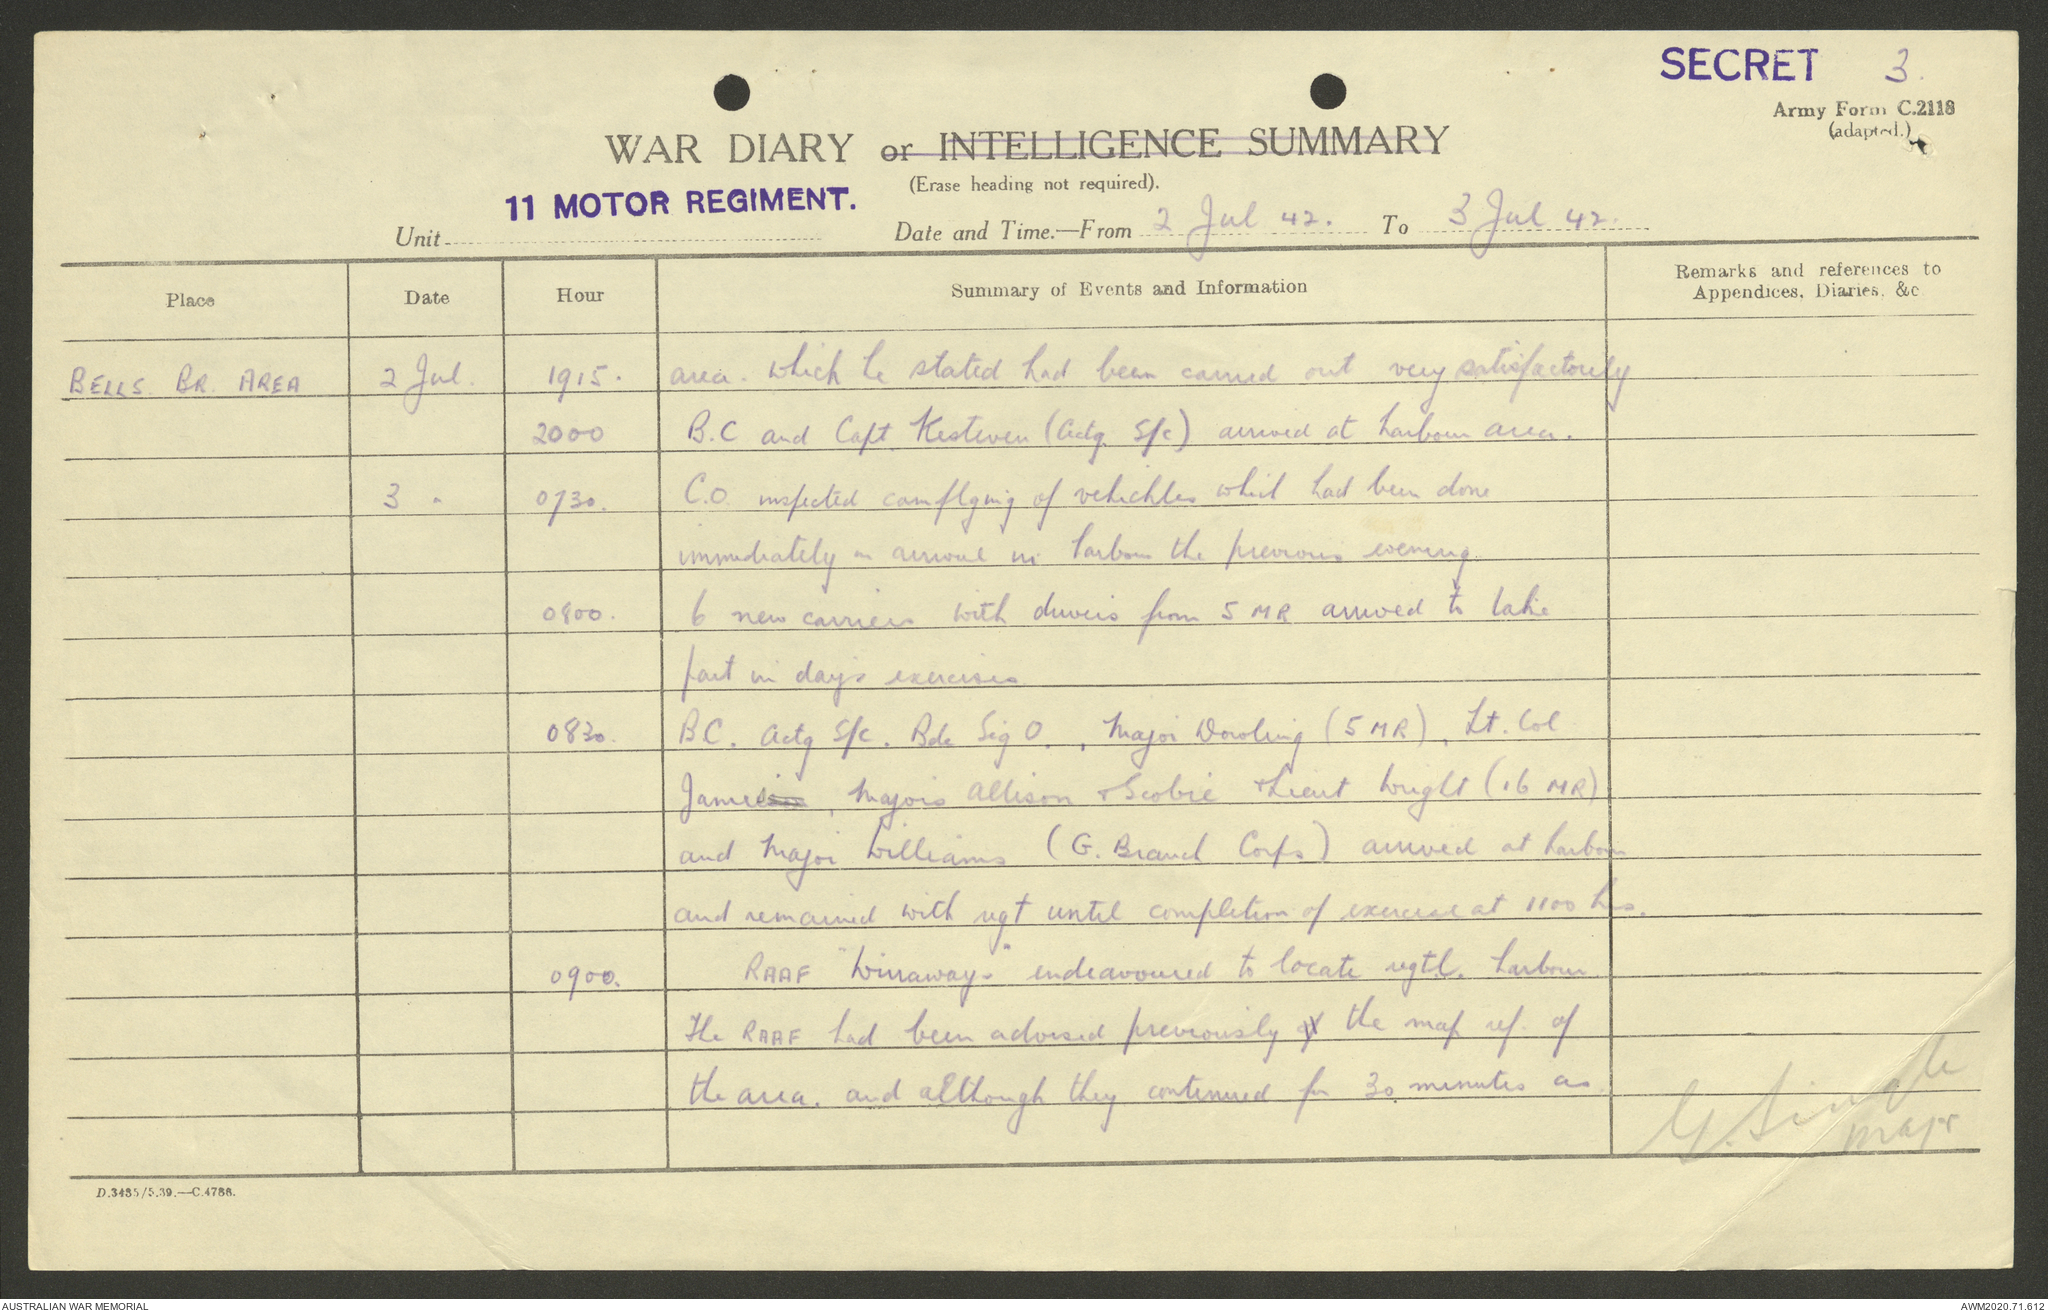 SECRET 3.
Army Form C.2118
(adapted.)
WAR DIARY or INTELLIGENCE SUMMARY
(Erase heading not required).
11 MOTOR REGIMENT.
Unit
Date and Time.—From 2 Jul 42. To 3 Jul 42.
Place Date Hour Summary of Events and Information Remarks and references to
Appendices, Diaries, &c
BELLS BR. AREA 2 Jul. 1915. area. which he stated had been carried out very satisfactorily
2000 B.C and Capt. Kesteven (Actg S/c) arrived at harbour area.
3 " 0730. C.O. inspected camflging of vehichles which had been done
immediately on arrival in harbour the previous evening.
0800. 6 new carriers with drivers from 5 MR arrived to take
part in day's exercises
0830. B.C. Actg S/c. Bde Sig O., Major Dowling (5 MR), Lt. Col
James, Majors Allison & Scobie & Lieut Wright (16 MR)
and Major Williams (G. Branch Corps) arrived at harbour
and remained with rgt until completion of exercise at 1100 hrs.
0900. RAAF "Wirraways" endeavoured to locate rgtl. harbour
The RAAF had been advised previously of the map ref. of
the area. and although they continued for 30 minutes as
Major
D.3485/5.39.—C.4788.
AUSTRALIAN WAR MEMORIAL AWM2020.71.612